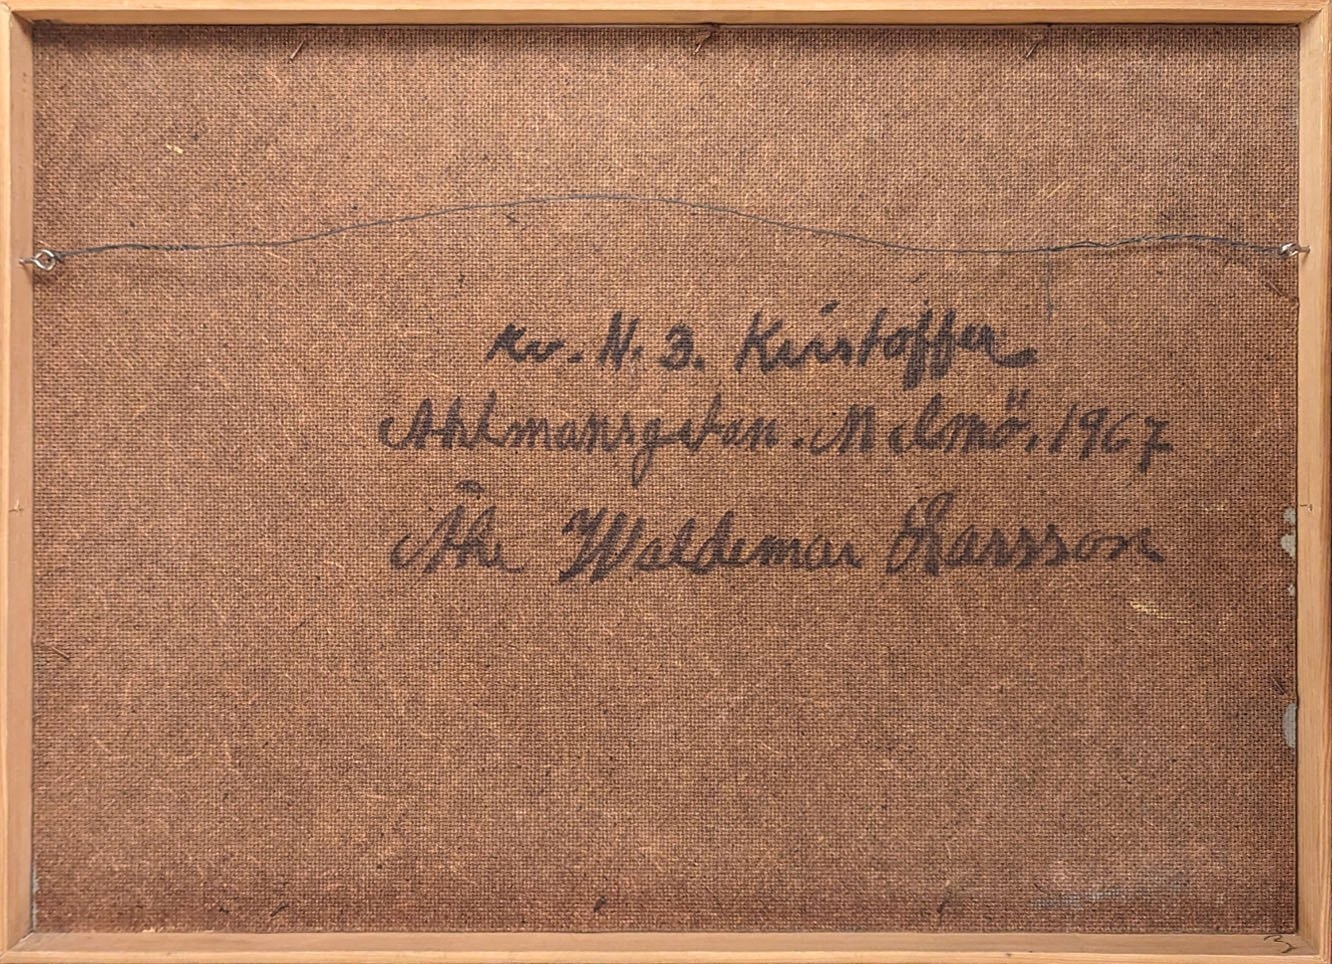 Kv. N. 3. Kristoffer.
Ahlmansgatan. Malmö. 1967
Åke Waldemar Larsson